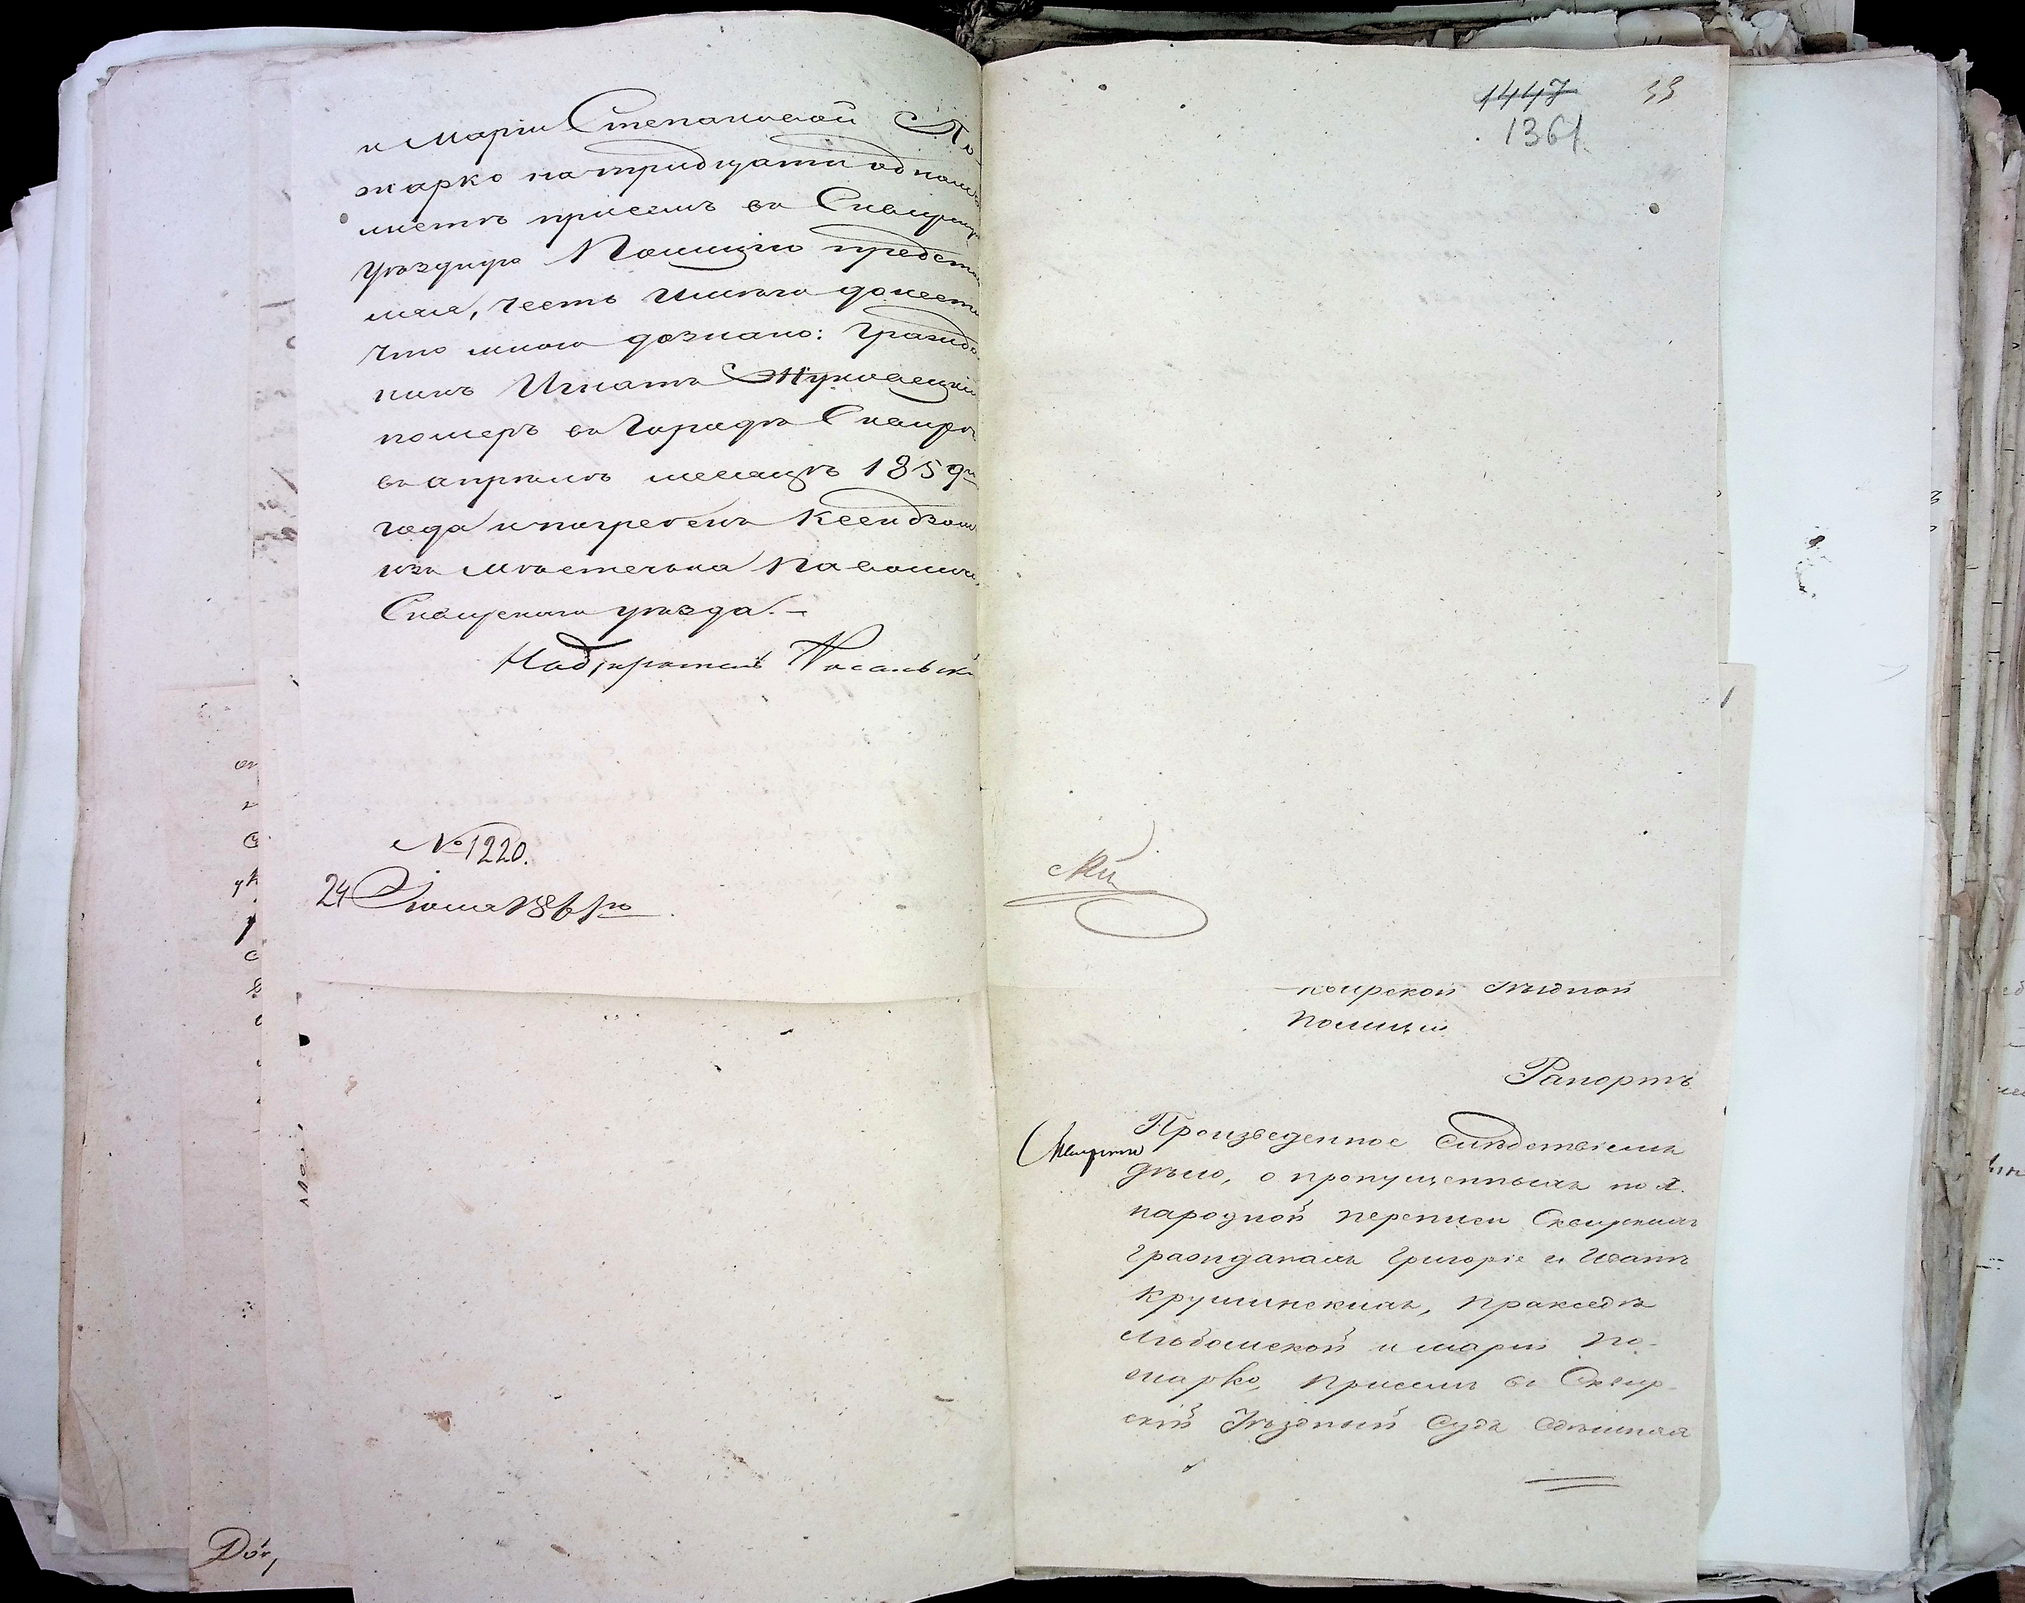 и Маріи Степановой По-
жарко на тридцати одномъ
листѣ при семъ въ Сквирскую
уѣздную Полицію представ
ляя, честь имѣю донести
что мною дознано: Гражда-
нинъ Игнатъ Жуковецкій
померъ въ Городѣ Сквирѣ
въ апрѣлѣ месяцѣ 1859го
года и погребенъ Ксендзомъ
изъ мѣстечка Паволочи,
Сквирскаго уѣзда.-
Надзиратель
№ 1220.
24 Іюня 1861го
1447
1361
33
Сквирской
Полиціи
Рапортъ
Произведенное слѣдствіемъ
дѣло, о пропущенныхъ по X.
народной переписи Сквирскихъ
гражданахъ Григоріе и Иванѣ
Крушинскихъ, Пракседѣ
и Маріи По-
жарко, при семъ въ Сквир-
скій Уѣздный Судъ